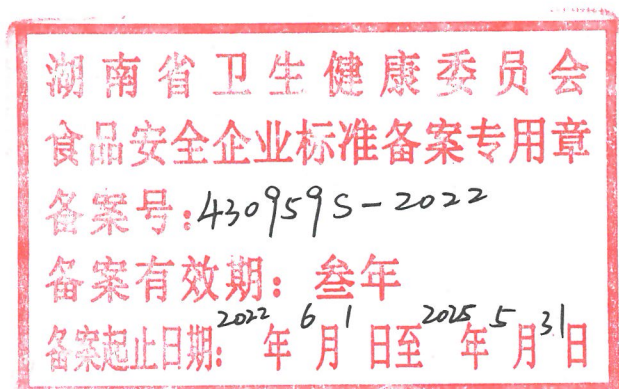 湖南省卫生健康委员会
食品安全企业标准备案专用章
备案号:430959S-2022
备案有效期:叁年
备案起止日期:2022年6月1日至2025年5月31日